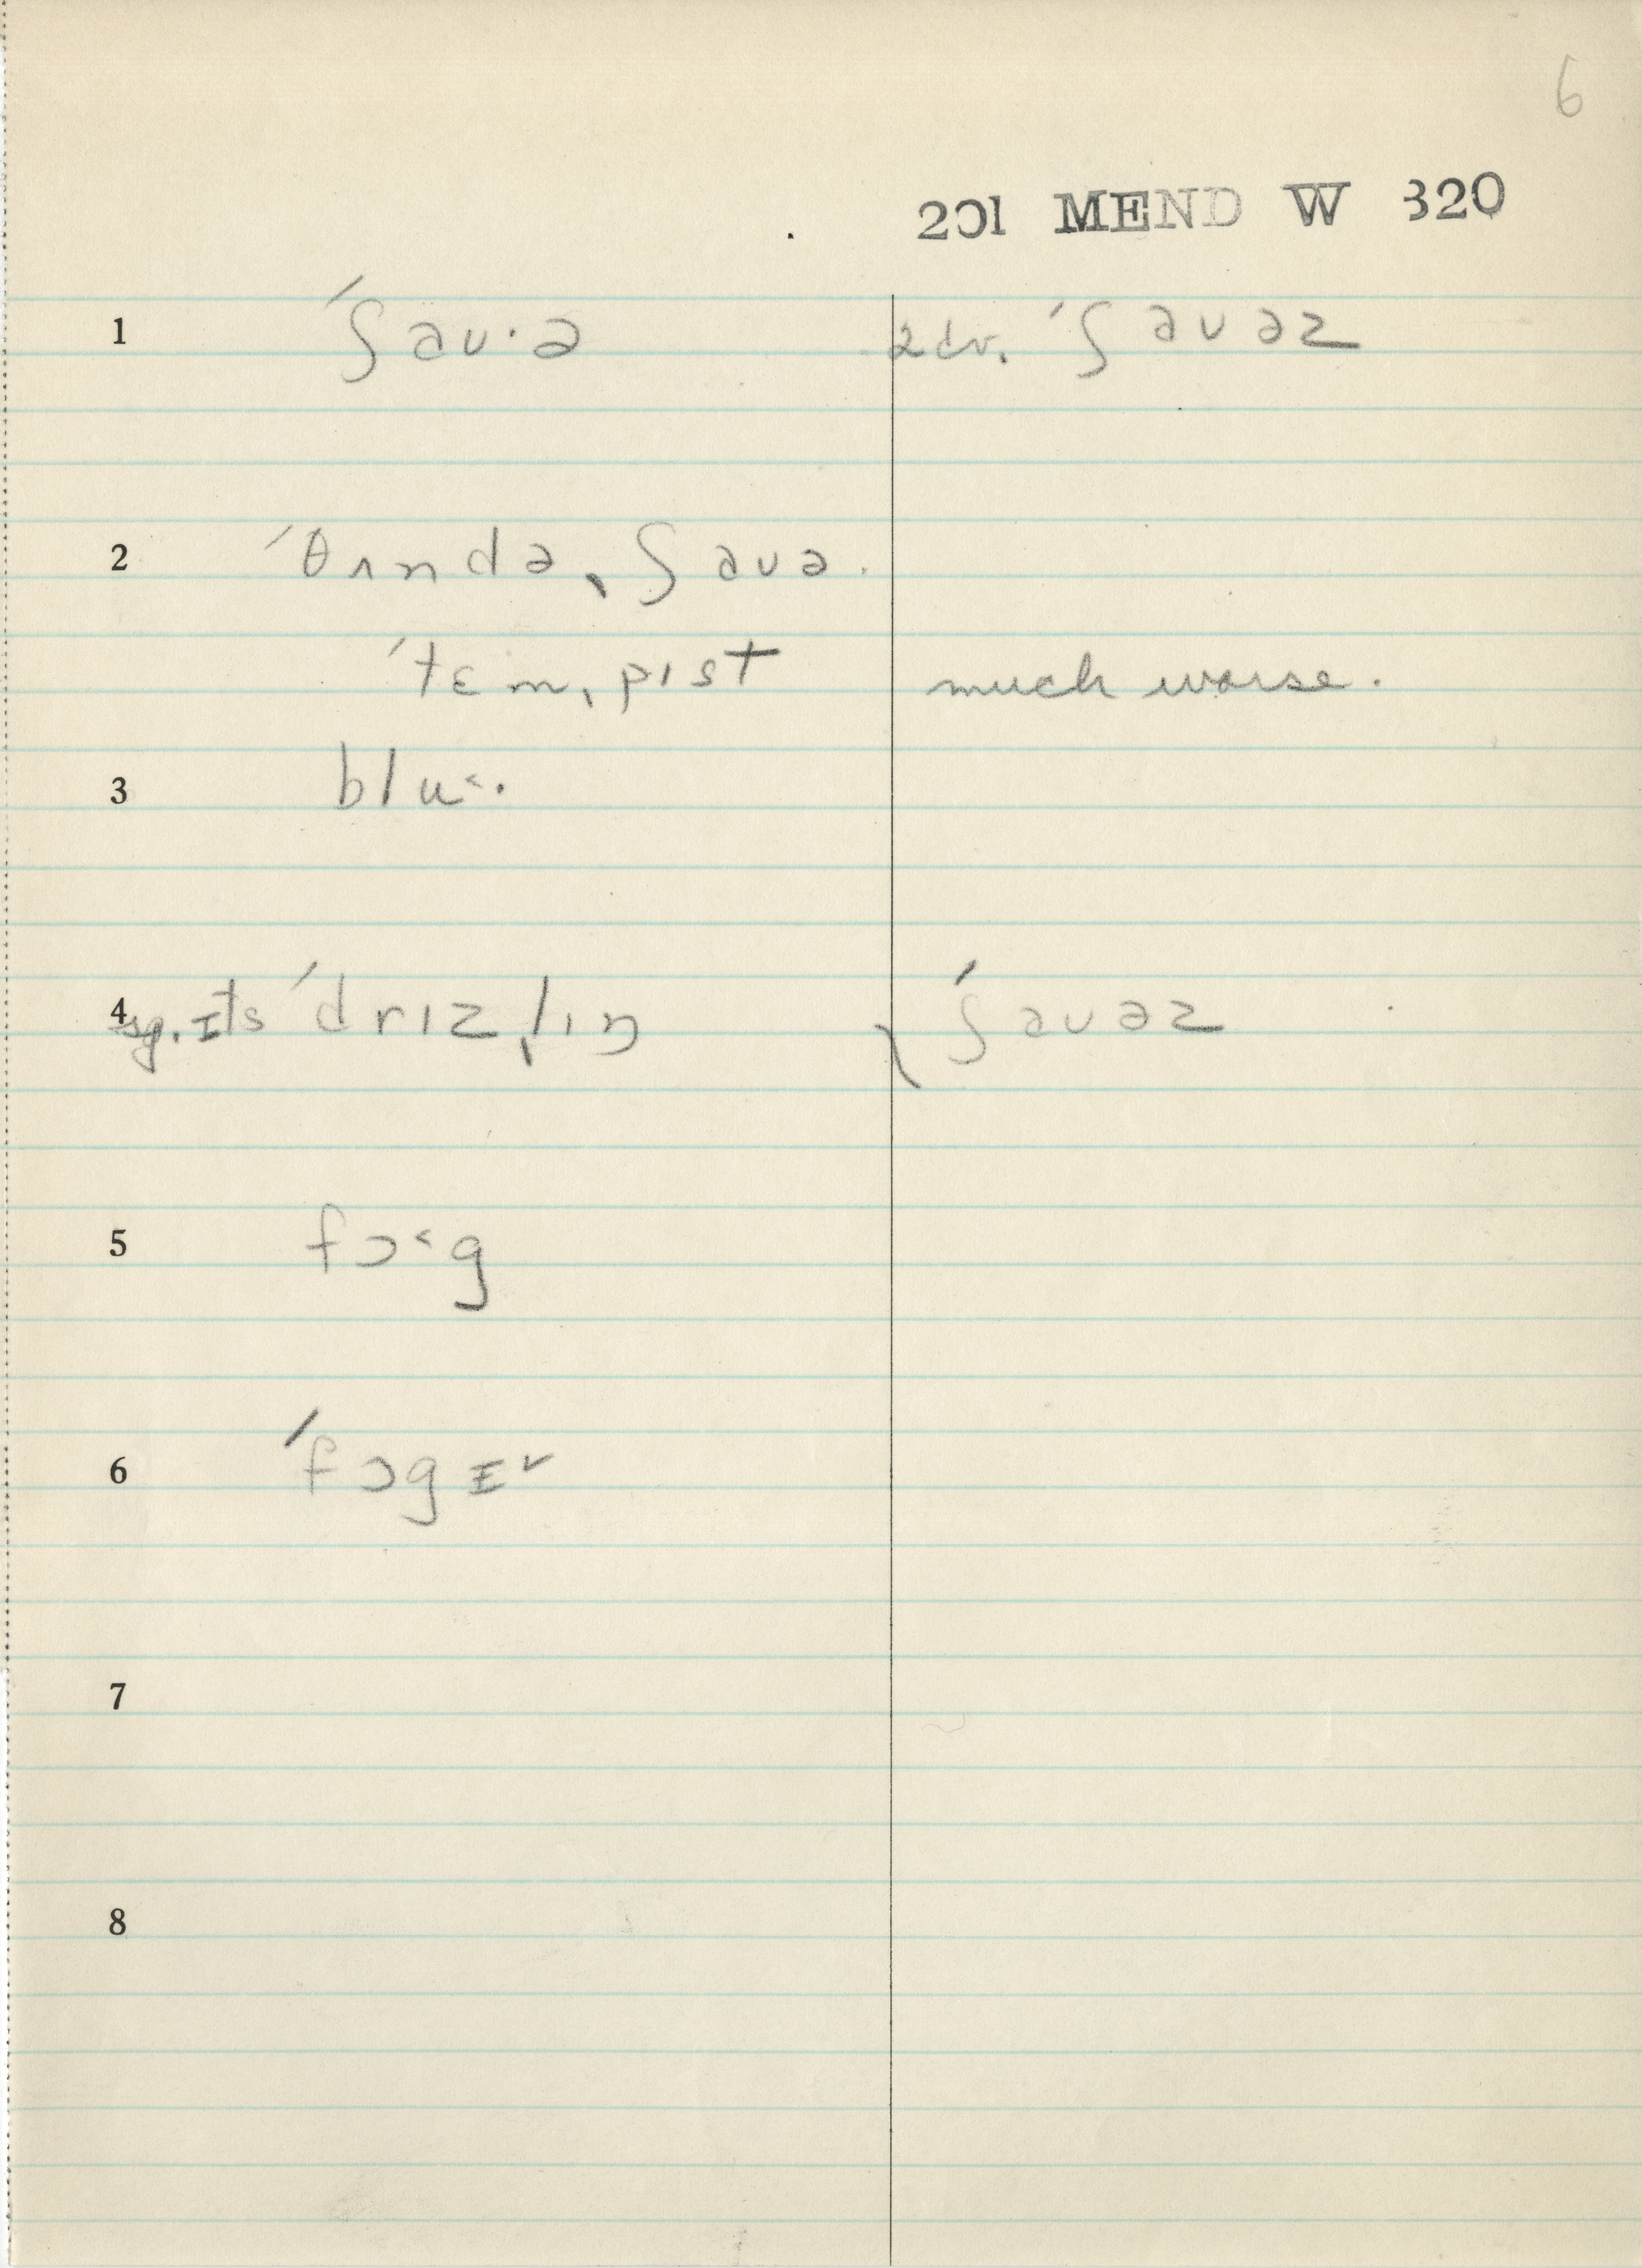 6
201 MEND W 320
1 ˈʃaʊ·ə adv. ˈʃaʊəz
2 ˈθʌndəˌʃaʊə.
ˈtɛmˌpɪst much worse.
3 blu˂.
4 sg. ɪts ˈdrɪzˌlɪŋ ˈʃaʊəz
5 fɔ˂g
6 ˈfɔgɪ˅
7
8